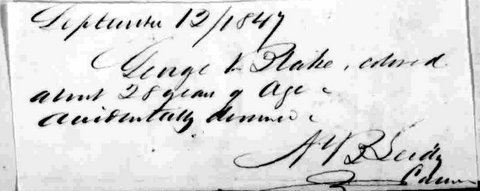 September 12/1847
George W Blake, colored
about 28 years of Age
accidentally drowned
N B Leidy
Coroner